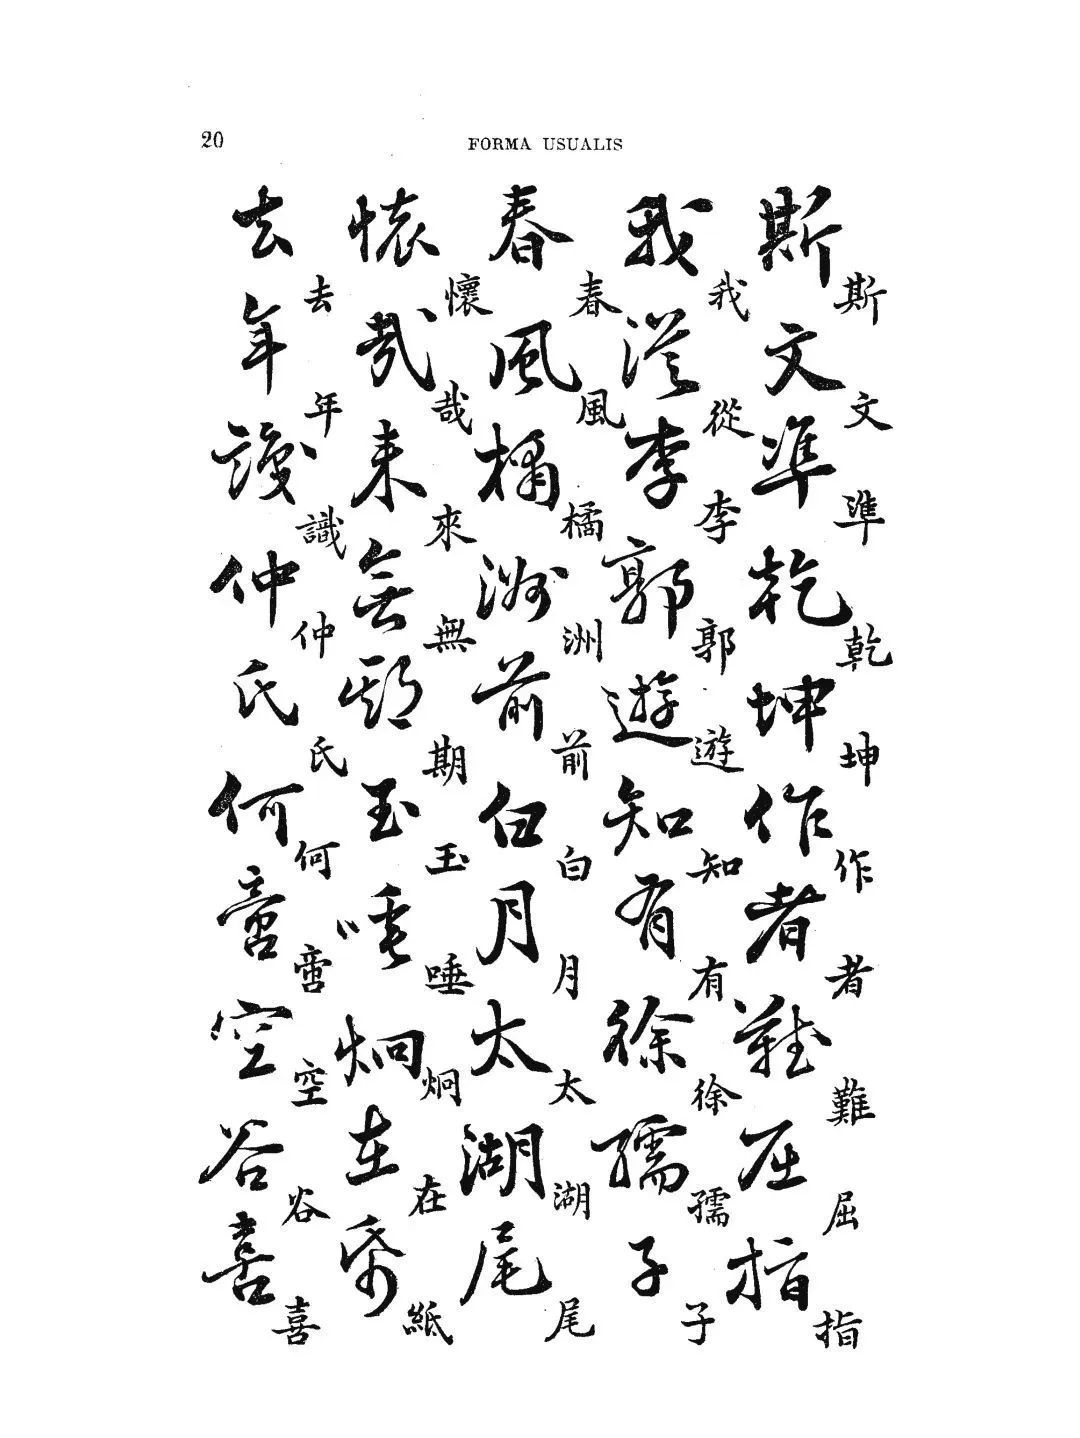 20
FORMA USUALIS
斯文準乾坤作者難屈指
斯文準乾坤作者難屈指
我從李郭遊知有徐孺子
我從李郭遊知有徐孺子
春風橘洲前白月太湖尾
春風橘洲前白月太湖尾
懷哉來無期玉唾炯在紙
懷哉來無期玉唾炯在紙
去年識仲氏何啻空谷喜
去年識仲氏何啻空谷喜